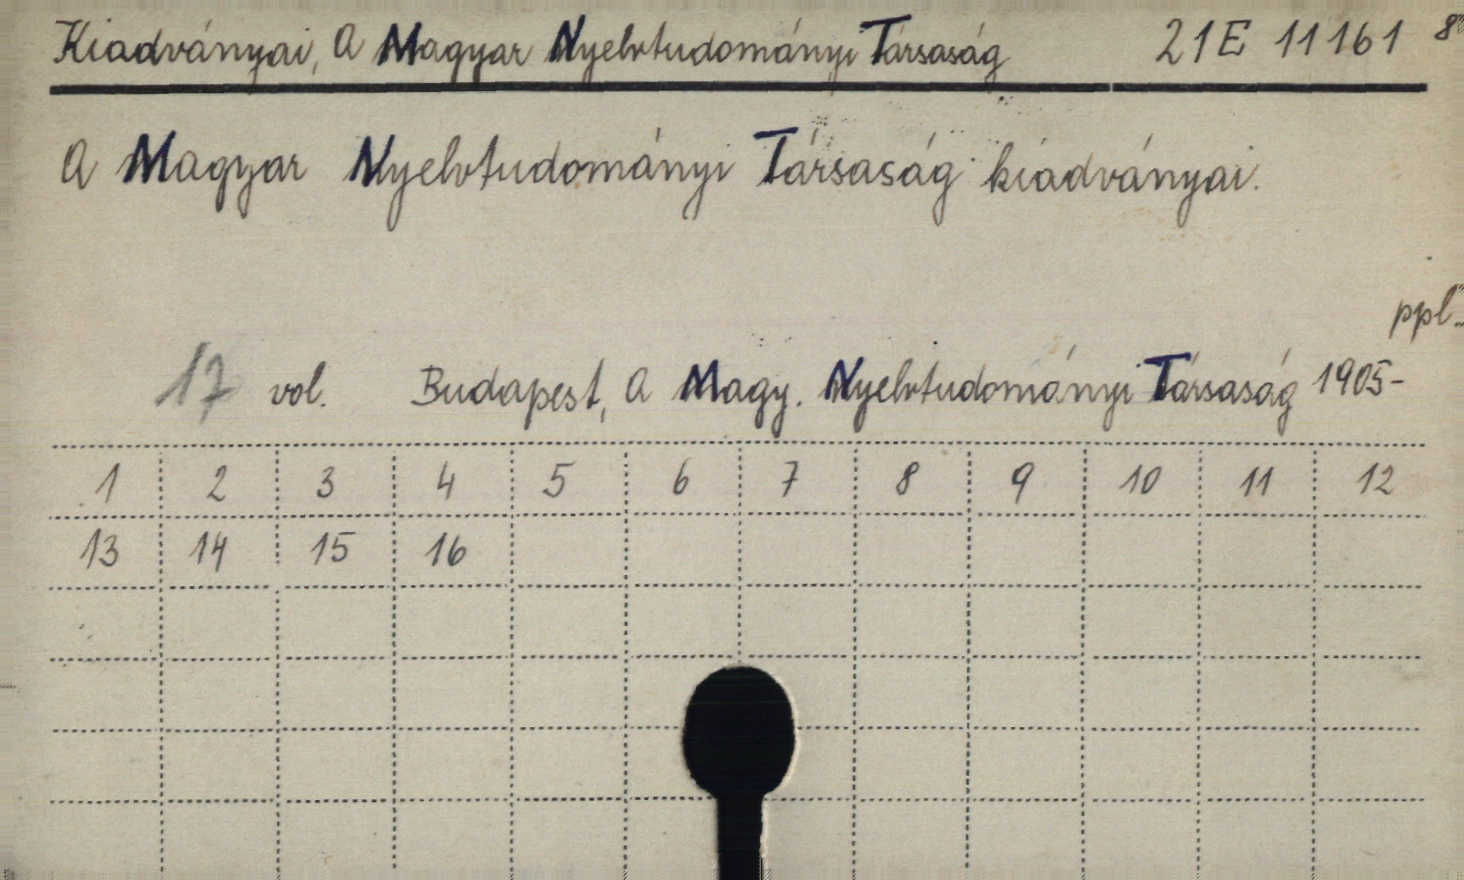 Kiadványai, A Magyar Nyelvtudományi Társaság 21E 11161 8°
A Magyar Nyelvtudományi Társaság kiadványai.
ppl.
17 vol. Budapest, A Magy. Nyelvtudományi Társaság 1905-
1 2 3 4 5 6 7 8 9 10 11 12
13 14 15 16